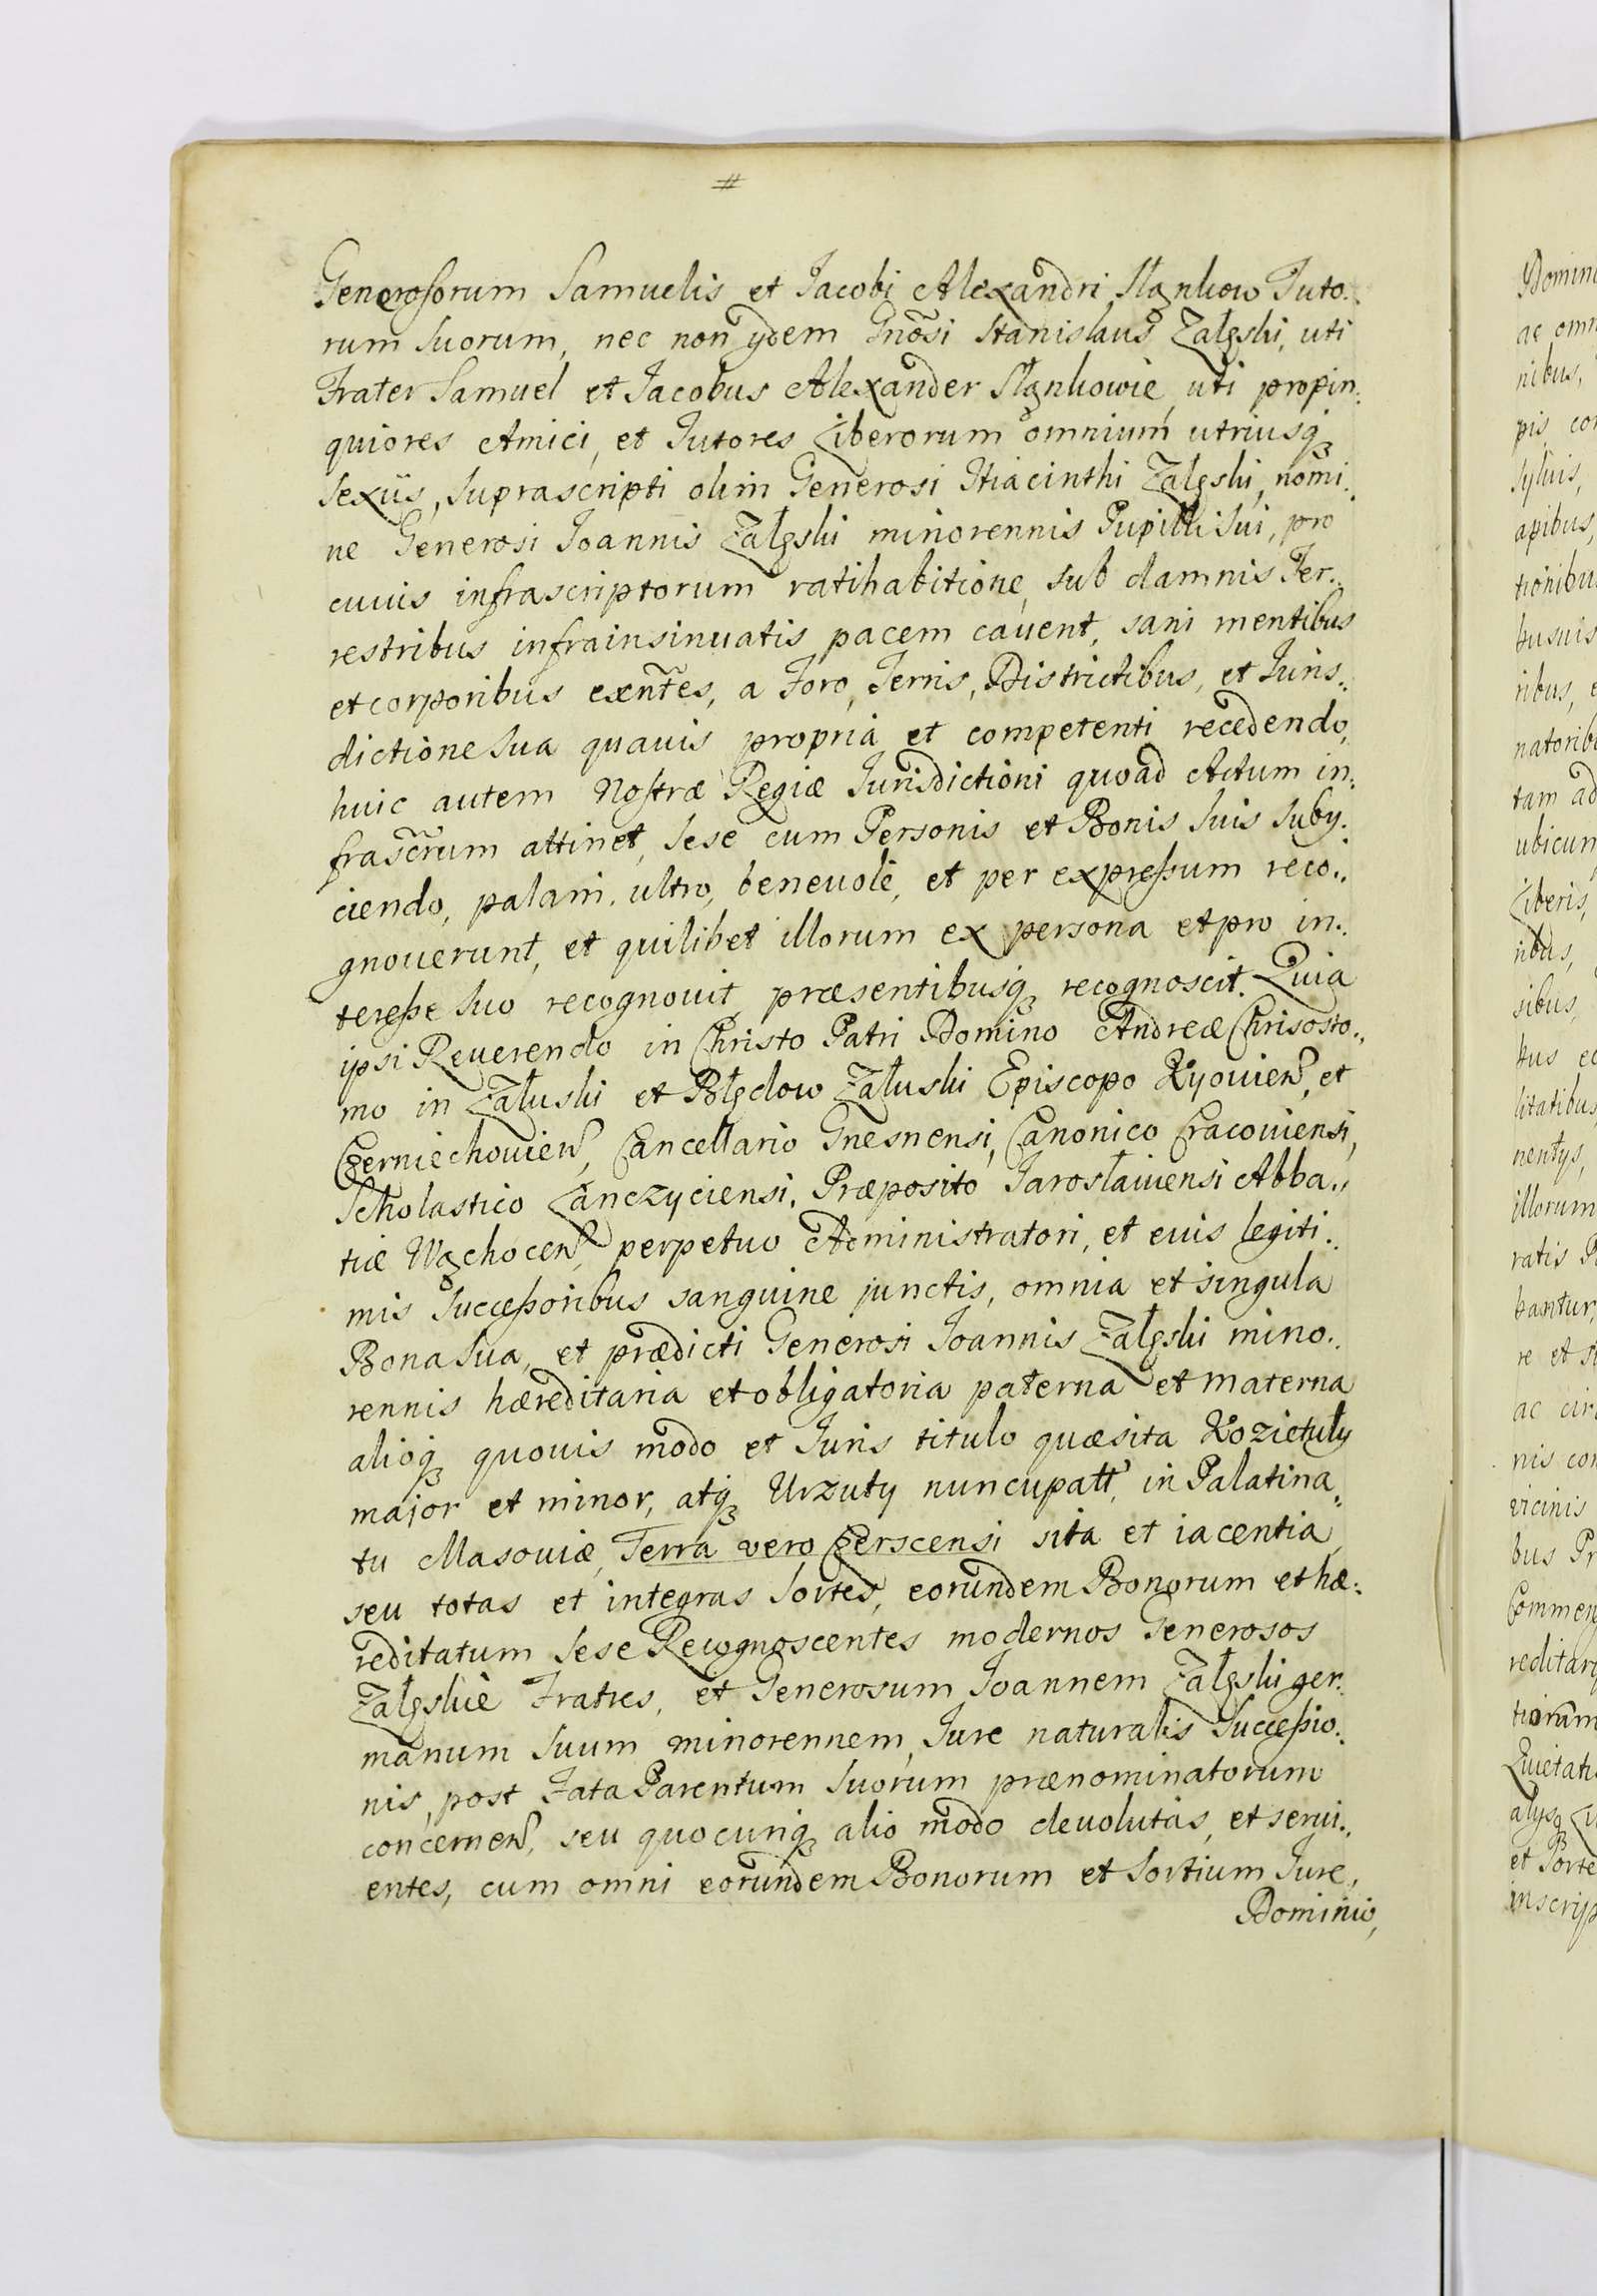 #
Generosorum Samuelis et Jacobi Alexandri Slankow Tuto..
rum Suorum, nec non ijdem Gnõsi Stanislaus Załęski, uti
Frater Samuel et Jacobus Alexander Slankowie, uti propin:
quiores Amici, et Tutores Liberorum omnium utriusq
sexûs, Suprascripti olim Generosi Hiacinthi Załęski, nomi:
ne Generosi Joannis Załęski minorennis Pupilli Sui, pro
cuius infrascriptorum ratihabitione, sub damnis Ter..
restribus infrainsinuatis pacem cavent, sani mentibus
et corporibus exñtes, a Foro, Terris, Districtibus, et Juris..
dictione Sua quavis propria et competenti recedendo,
huic autem Nostræ Regiæ Jurisdictioni quoad Actum in:
frascrũm attinet, Sese cum Personis et Bonis Suis Subij:
ciendo, palam, ultro, benevolè, et per expressum reco..
gnoverunt, et quilibet illorum ex persona et pro in..
teresse Suo recognovit, præsentibusq recognoscit. Quia
ipsi Reverendo in Christo Patri Domino Andreæ Chrisosto..
mo in Załuski et Błędow Załuski Episcopo Kyovien, et
Czerniechovien, Cancellario Gnesnensi, Canonico Cracoviensi,
Scholastico Lanczyciensi, Præposito Jarosławiensi Abba..
tiæ Wąchocen, perpetuo Administratori, et eius legiti..
mis Successoribus sanguine junctis, omnia et singula
Bona Sua, et prædicti Generosi Joannis Załęski mino..
rennis hæreditaria et obligatoria paterna et materna
alioq quovis modo et Juris titulo quæsita Kozietuły
major et minor, atq Urzuty nuncupatt, in Palatina„
tu Masoviæ, Terra vero Czerscensi sita et iacentia,
seu totas et integras Sortes, eorundem Bonorum et hæ:
reditatum Sese Recognoscentes modernos Generosos
Załęskie Fratres, et Generosum Joannem Załęski ger:
manum Suum minorennem, Jure naturalis Successio..
nis, post Fata Parentum Suorum prænominatorum
concernen, seu quocunq alio modo devolutas, et servi..
entes, cum omni eorundem Bonorum et Sortium Jure,
Dominio,